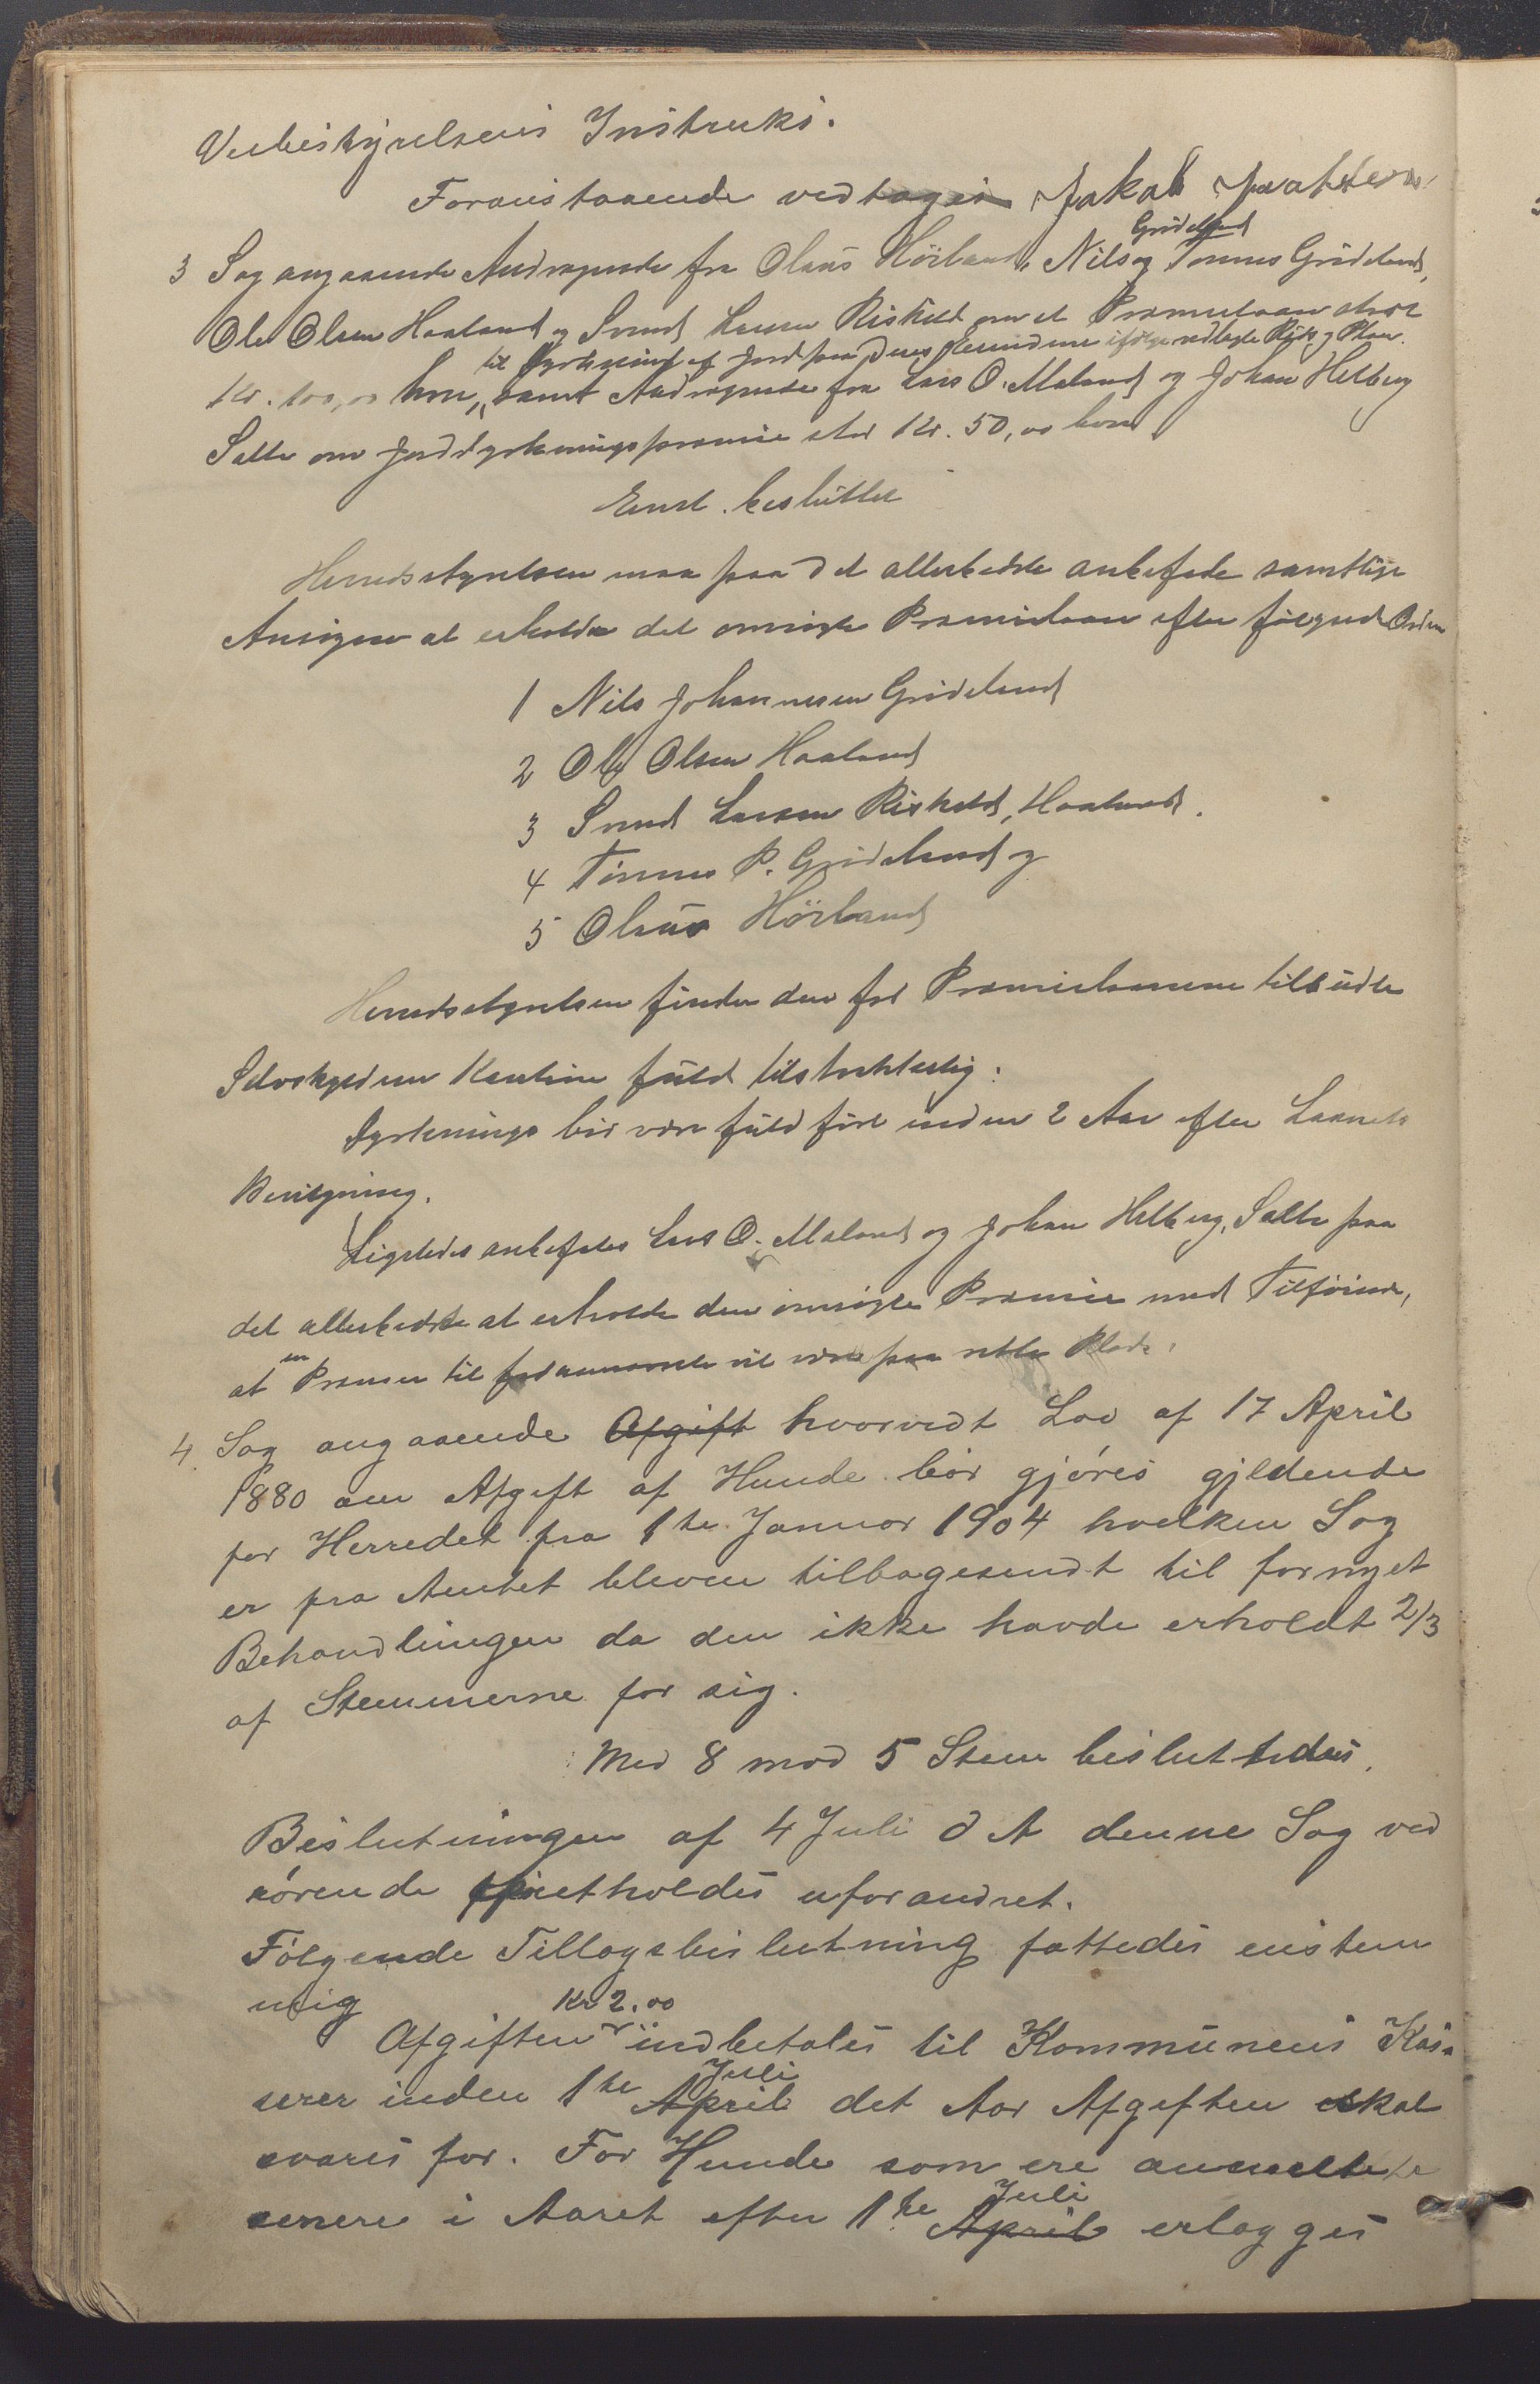 Veibestyrelsens Instruks.
Foranstaaende vedtages Jakob
3 Sag angaaende Andragende fra Olaus Hörland, Nils Grödeland og Tönnes Grödeland,
Ole Olsen Haaland og Svend Larsen Riskeld om et Præmielaan stort
til Dyrkning af Jord paa Deres Eiendomme ifölge vedlagte Rids og Plan.
Kr. 100,00 hver, samt Andragende fra Lars O. Maland og Johan Helberg
Salte om Jorddyrkningspræmie stor Kr. 50,00 hver
Enst. besluttet
Herredsstyrelsen maa paa det allerbedste anbefale samtlige
Ansögere at erholde det omsögte Præmielaan efter fölgende Orden
1 Nils Johannesen Grödeland
2 Ole Olsen Haaland
3 Svend Larsen Riskeld, Haaland.
4 Tönnes P. Grödeland og
5 Olaus Hörland
Herredsstyrelsen finder den for Præmielaanene tilbudte
Selvskyldner Kaution fuld tilstrækkelig.
Dyrkninga bör være fuldfört inden 2 Aar efter Laanets
Bevilgning.
Ligeledes anbefales Lars O. Maland og Johan Helberg, Salte paa
det allerbedste at erholde den omsögte Præmie med Tilföiende,
at en Præmie til forannævnte vil være paa rette Plads.
4. Sag angaaende Afgift hvorvidt Lov af 17 April
1880 om Afgift af Hunde bör gjöres gjeldende
for Herredet fra 1te Januar 1904 hvilken Sag
er fra Amtet bleven tilbagesendt til fornyet
Behandlingen da den ikke havde erholdt 2/3
af Stemmerne for sig.
Med 8 mod 5 Stem besluttedes.
Beslutningen af 4 Juli d A denne Sag ved
rörende opretholdes uforandret.
Fölgende Tillægsbeslutning fattedes enstem
mig
Kr 2.00
Afgiften indbetales til Kommunens Kas-
Juli
serer inden 1te April det Aar Afgiften skal
svares for. For Hunde som ere anmeldte
Juli
senere i Aaret efter 1te April erlægges